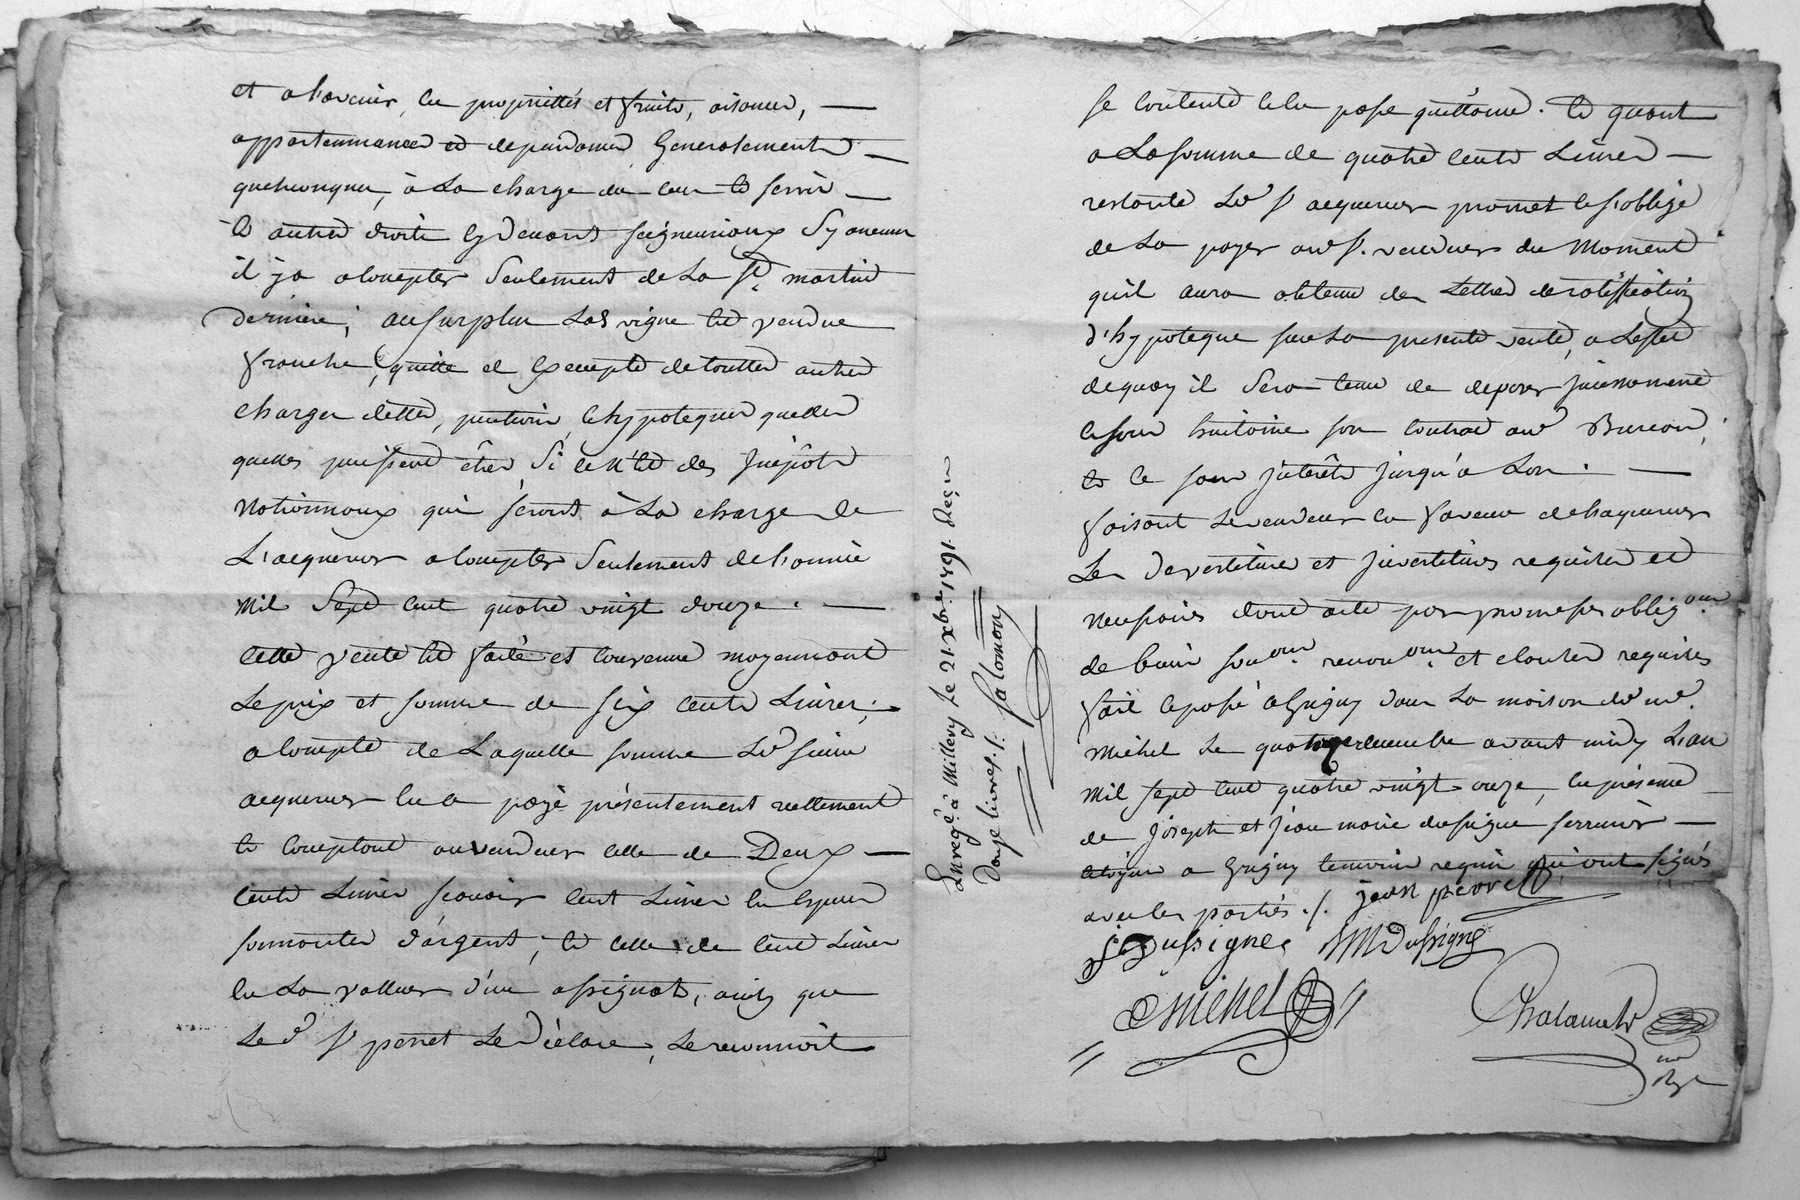 et a l'avenir, les propriettés et fruits, aisances, —
appartenances et dependances Generalement —
quelconques, à La charge du cens et servis —
et autres droits cy devant seigneuriaux sy aucuns
il y a a compter Seulement de La St. martin
derniere; au surplus Las vigne est vendue
franche, quitte et Exempte de touttes autres
charges dettes, pentions, et hypoteques quelles
quelles puissent être, Si ce n'est des Impôts
Nationnaux qui seront à La charge de
L'acquereur a compter Seulement de L'année
mil Sept cent quatre vingt douze. —
cette vente est faite et convenue moyennant
Le prix et somme de six cents Livres;
a compte de Laquelle somme Led sieur
acquereur en a payé présentement réellement
et comptant au vendeur celle de Deux —
cents Livres scavoir cent Livres en Especes
sonnantes d'argent; et celle de cent Livres
en La valleur d'un assignat, ainsy que
Led Sr perret Le déclare, Le reconnoit
Enregé. à Millery Le 21. Xbre 1791. Reçu
Douze livres ./. Salomon
Se contente et en passe quittance. Et quant
a La somme de quatre cents Livres —
restante Led Sr acquereur promet et s'oblige
de La payer aud Sr. vendeur du Moment
qu'il aura obtenu des Lettres de ratiffication
d'hypoteque sur La presente vente, a L'effet
de quoy il Sera tenu de deposer
huitaine son contrat aud Bureau,
et ce sans interêts jusqu'a Lors. —
faisant Le vendeur en faveur de L'acquereur
Les devestitures et Investitures requises et
necessaires dont acte par promesses obligons.
de biens soumons. renonons. et clauses requises
fait et passé a Grigny dans La maison dud me.
michel Le quatorze decembre avant midy L'an
mil sept cent quatre vingt onze, en présence
de Joseph et Jean marie dussigne serruriers —
citoyens a Grigny temoins requis qui ont signés
avec les parties ./. jean pierret
J Dussigne JM Dussigne
Michel